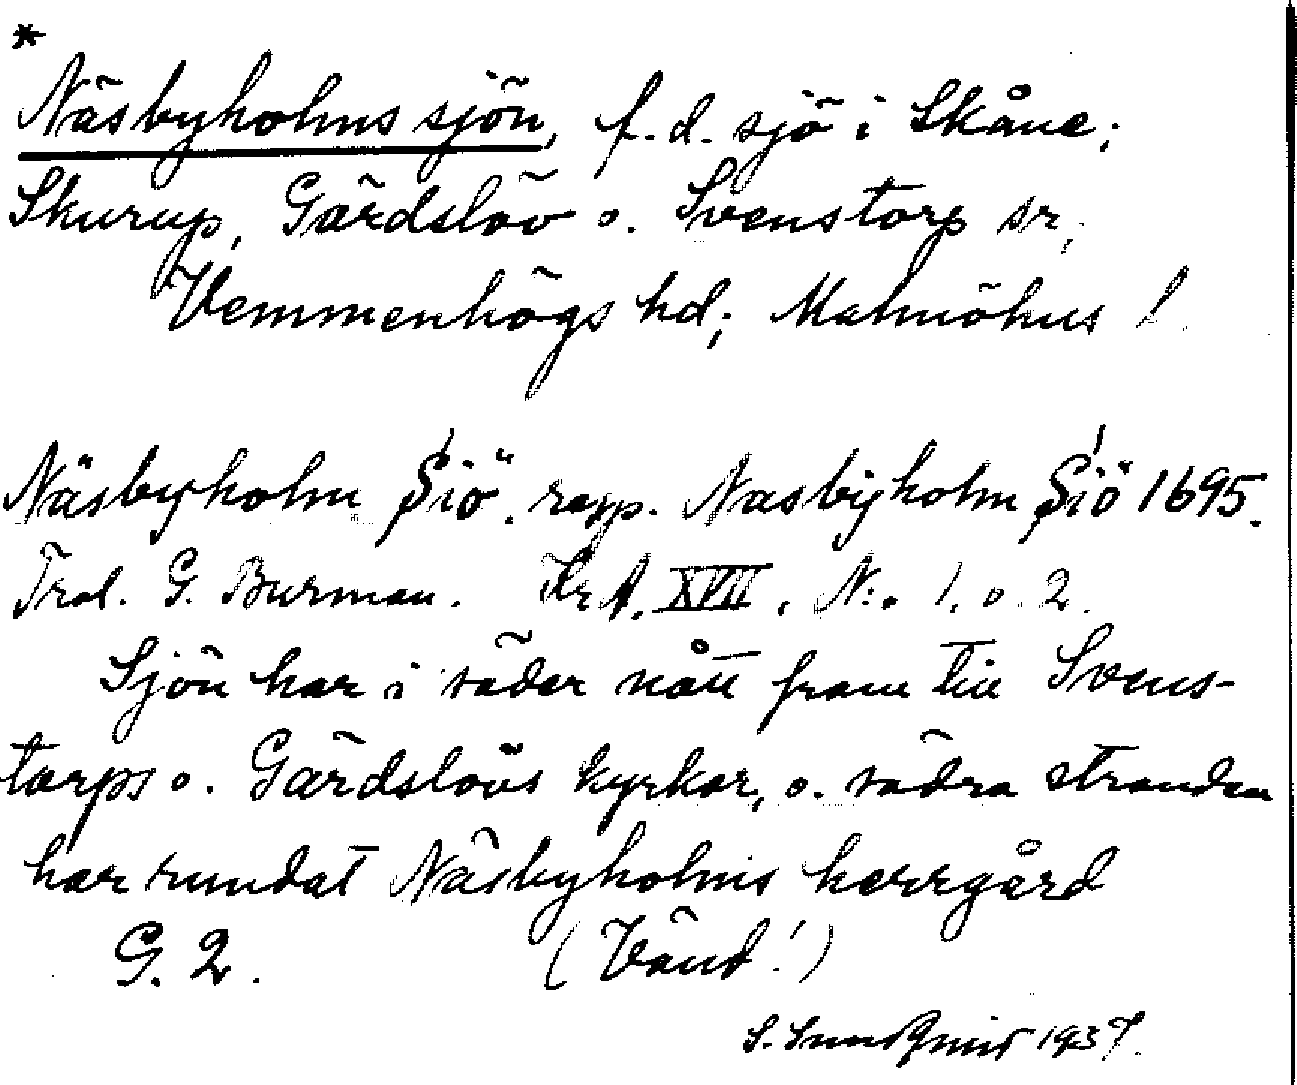 *
Näsbyholmssjön, f.d. sjö i Skåne;
Skurup, Gärdslöv o. Svenstorp sr,
Vemmenhögs hd; Malmöhus l.
Näsbyholm Siö. resp. Nasbÿholm Siö 1695.
Trol. G. Burman. KrA. XVII. N:. 1. o. 2.
Sjön har i söder nått fram till Svens-
torps o. Gärdslövs kyrkor, o. södra stranden
har rundat Näsbyholms herrgård
G. 2. (Vänd!)
S. Sundqvist 1937.